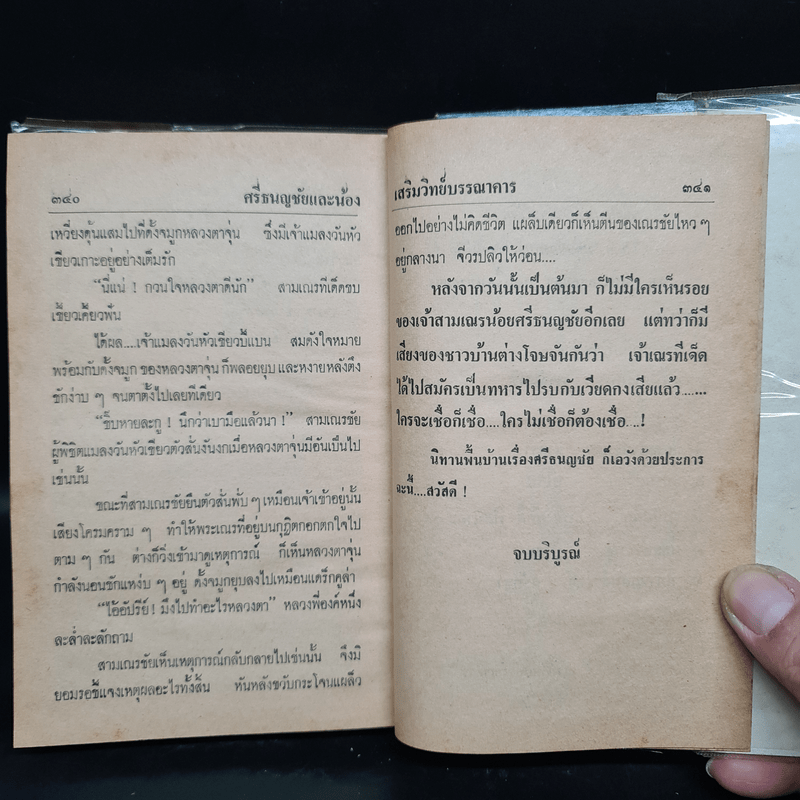 ๓๔๐ ศรีธนญชัยและน้อง
เหวี่ยงดุ้นแสมไปที่ดั้งจมูกหลวงตาจุ่น ซึ่งมีเจ้าแมลงวันหัว
เขียวเกาะอยู่อย่างเต็มรัก
“นี่แน่ ! กวนใจหลวงตาดีนัก” สามเณรที่เด็ดขบ
เขี้ยวเคี้ยวฟัน
ได้ผล....เจ้าแมลงวันหัวเขียวบี้แบน สมดังใจหมาย
พร้อมกับดั้งจมูก ของหลวงตาจุ่น ก็พลอยยุบ และหงายหลังตึง
ชักง่าบ ๆ จนตาตั้งไปเลยทีเดียว
“ชิบหายละกู ! นึกว่าเบามือแล้วนา !” สามเณรชัย
ผู้พิชิตแมลงวันหัวเขียวตัวสั่นงันงกเมื่อหลวงตาจุ่นมีอันเป็นไป
เช่นนั้น
ขณะที่สามเณรชัยยืนตัวสั่นพั่บ ๆ เหมือนเจ้าเข้าอยู่นั้น
เสียงโครมคราม ๆ ทำให้พระเณรที่อยู่บนกุฏิตกอกตกใจไป
ตาม ๆ กัน ต่างก็วิ่งเข้ามาดูเหตุการณ์ ก็เห็นหลวงตาจุ่น
กำลังนอนชักแหง่บ ๆ อยู่ ดั้งจมูกยุบลงไปเหมือนแด๊ร็กคูล่า
“ไอ้อัปรีย์ ! มึงไปทำอะไรหลวงตา” หลวงพี่องค์หนึ่ง
ละล่ำละลักถาม
สามเณรชัยเห็นเหตุการณ์กลับกลายไปเช่นนั้น จึงมิ
ยอมรอชี้แจงเหตุผลอะไรทั้งสิ้น หันหลังขวับกระโจนแผล็ว
เสริมวิทย์บรรณาคาร ๓๔๑
ออกไปอย่างไม่คิดชีวิต แผล็บเดียวก็เห็นตีนของเณรชัยไหว ๆ
อยู่กลางนา จีวรปลิวให้ว่อน....
หลังจากวันนั้นเป็นต้นมา ก็ไม่มีใครเห็นรอย
ของเจ้าสามเณรน้อยศรีธนญชัยอีกเลย แต่ทว่าก็มี
เสียงของชาวบ้านต่างโษษจันกันว่า เจ้าเณรที่เด็ด
ได้ไปสมัครเป็นทหารไปรบกับเวียดกงเสียแล้ว.......
ใครจะเชื่อก็เชื่อ....ใครไม่เชื่อก็ต้องเชื่อ....!
นิทานพื้นบ้านเรื่องศรีธนญชัย ก็เอวังด้วยประการ
ฉะนี้....สวัสดี !
จบบริบูรณ์